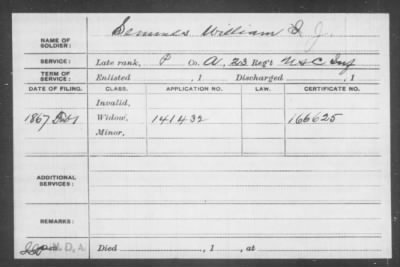 NAME OF SOLDIER: Semmes William J.
SERVICE: Late rank, P Co. A, 23 Reg't U S C Inf
TERM OF SERVICE: Enlisted , 1 Discharged , 1
DATE OF FILING. CLASS. APPLICATION NO. LAW. CERTIFICATE NO.
Invalid,
1867 Widow, 141432 166625
Minor,
ADDITIONAL SERVICES:
REMARKS:
Died , 1 , at